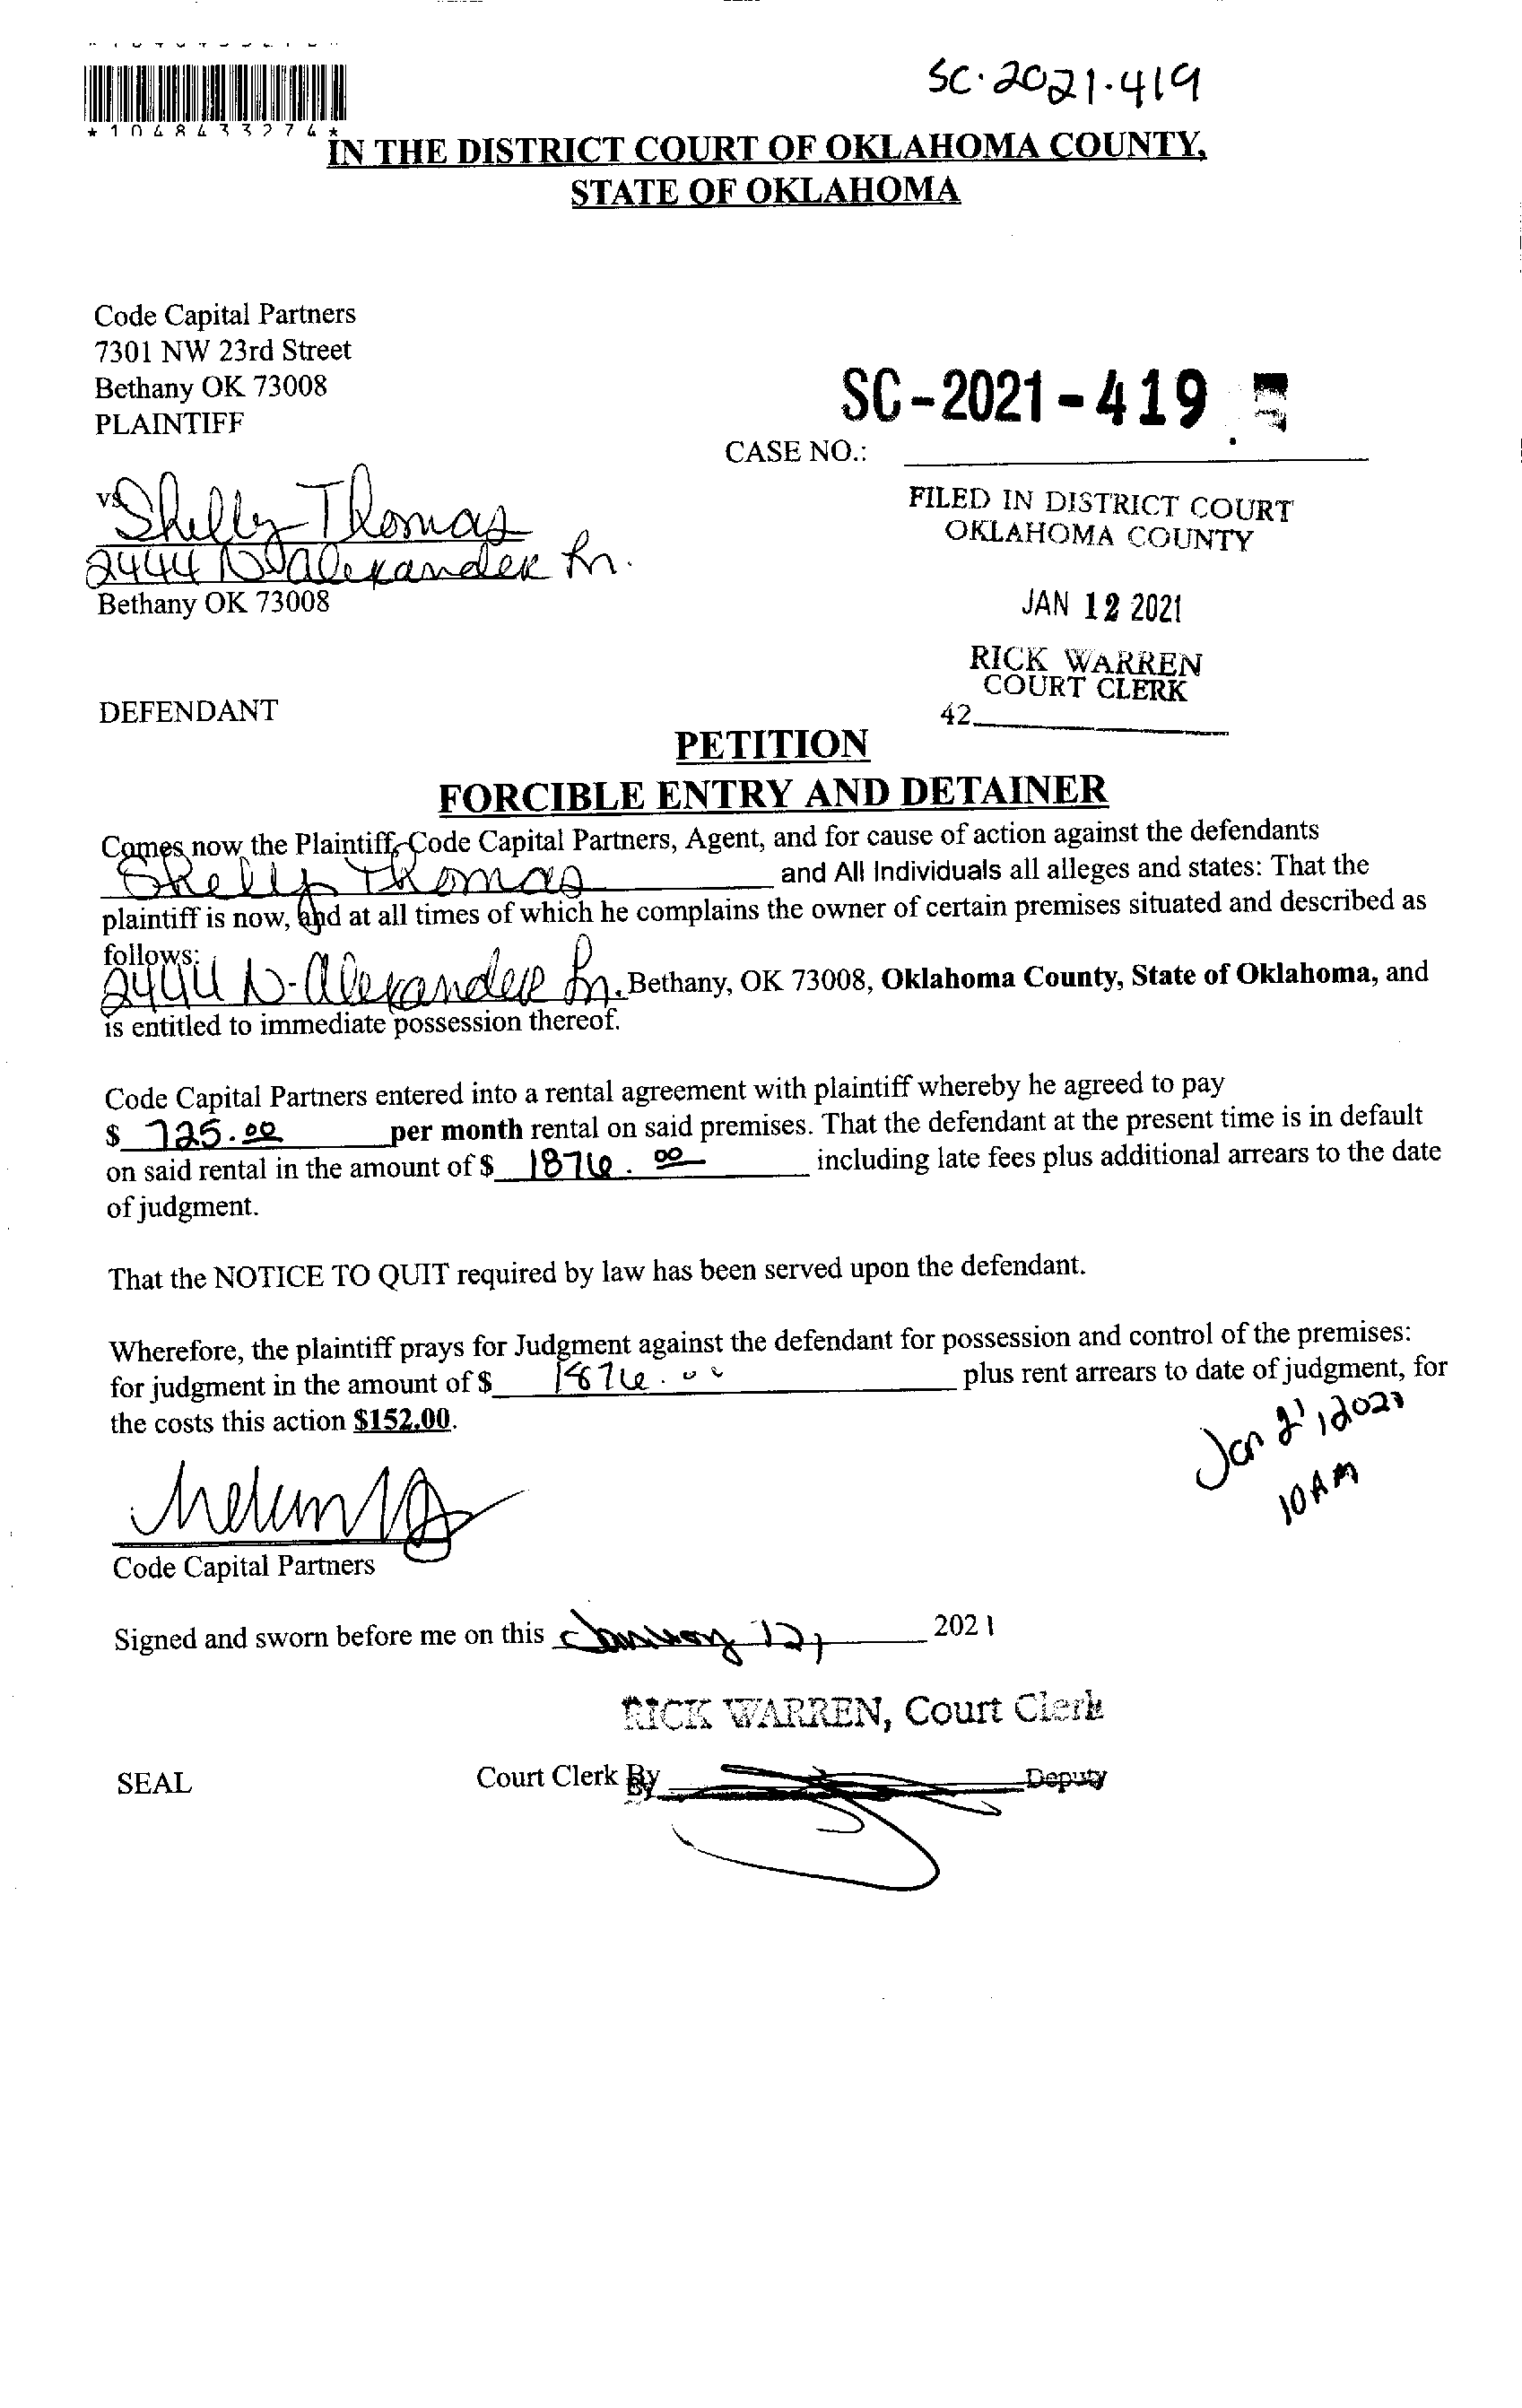 SC-2021-419
*1048433274*
IN THE DISTRICT COURT OF OKLAHOMA COUNTY,
STATE OF OKLAHOMA
Code Capital Partners
7301 NW 23rd Street
Bethany OK 73008
PLAINTIFF
SC-2021-419
CASE NO.:
vs
Shelly Thomas
2444 N Alexander Ln.
Bethany OK 73008
FILED IN DISTRICT COURT
OKLAHOMA COUNTY
JAN 12 2021
RICK WARREN
COURT CLERK
42
DEFENDANT
PETITION
FORCIBLE ENTRY AND DETAINER
Comes now the Plaintiff, Code Capital Partners, Agent, and for cause of action against the defendants
Shelly Thomas and All Individuals all alleges and states: That the
plaintiff is now, and at all times of which he complains the owner of certain premises situated and described as
follows:
2444 N. Alexander Ln. Bethany, OK 73008, Oklahoma County, State of Oklahoma, and
is entitled to immediate possession thereof.
Code Capital Partners entered into a rental agreement with plaintiff whereby he agreed to pay
$ 725.00 per month rental on said premises. That the defendant at the present time is in default
on said rental in the amount of $ 1876.00 including late fees plus additional arrears to the date
of judgment.
That the NOTICE TO QUIT required by law has been served upon the defendant.
Wherefore, the plaintiff prays for Judgment against the defendant for possession and control of the premises:
for judgment in the amount of $ 1876.00 plus rent arrears to date of judgment, for
the costs this action $152.00.
Jan 21, 2021
10 AM
Code Capital Partners
Signed and sworn before me on this January 12, 2021
RICK WARREN, Court Clerk
SEAL
Court Clerk By
By Deputy